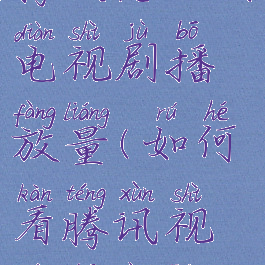 diàn shì jù bō
电视剧播
fàng liáng rú hé
放量(如何
kàn téng xùn shì
看腾讯视